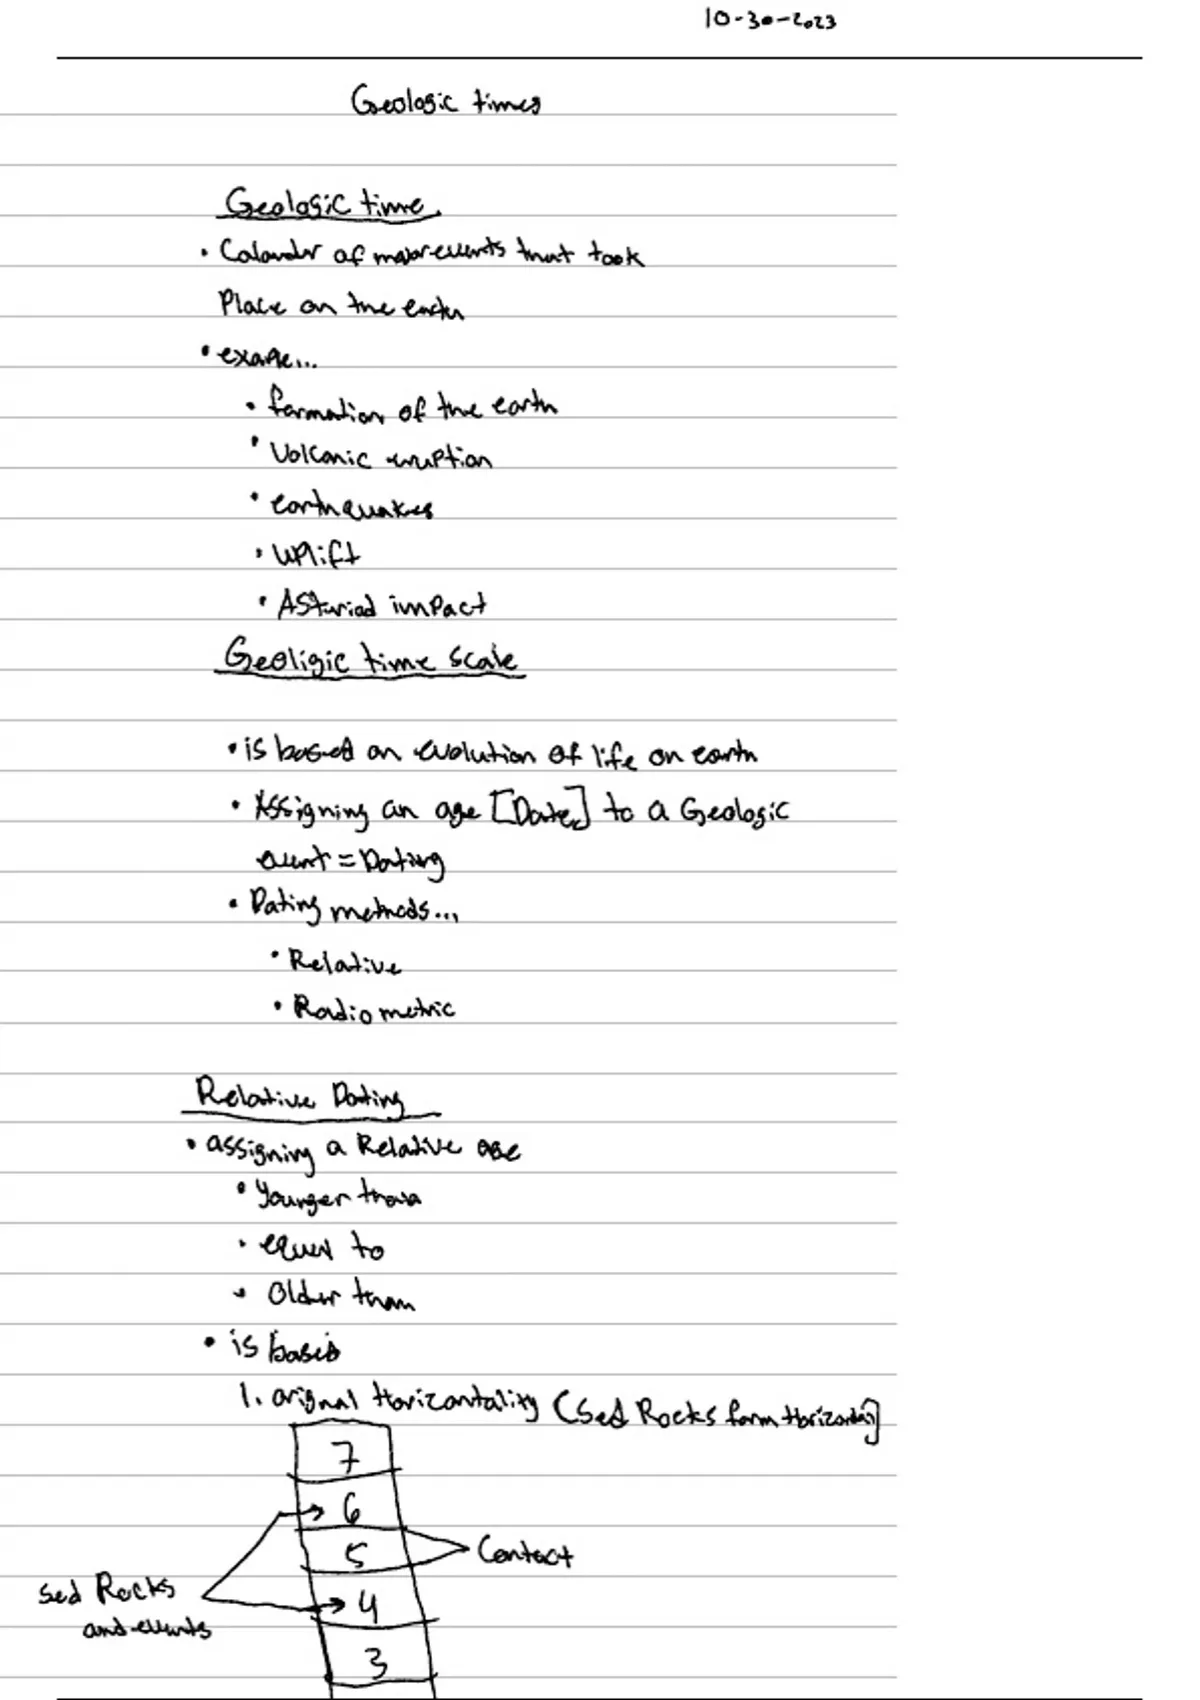 10-30-2023
Geologic times
Geologic time
• Calander of major events that took
Place on the earth
• exaple...
• formation of the earth
• Volcanic eruption
• earthquakes
• uplift
• Asturiod impact
Geoligic time scale
• is based on evolution of life on earth
• Assigning an age [Date] to a Geologic
event = Dating
• Dating methods...
• Relative
• Radiometric
Relative Dating
• assigning a Relative age
• Younger than
• equal to
• Older than
• is based
1. orignal Horizontality (Sed Rocks form Horizontaly]
7
6
5
Contact
Sed Rocks
and events
4
3